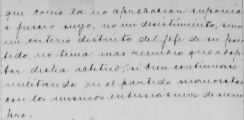 que como la no aprobación suponía
a juicio suyo, no un desistimiento, sino
un criterio distinto del jefe de su par-
tido, no tenía más recurso que adop-
tar dicha actitud, si bien continuaría
militando en el partido monárquico
con los mismos entusiasmos de siem-
pre.